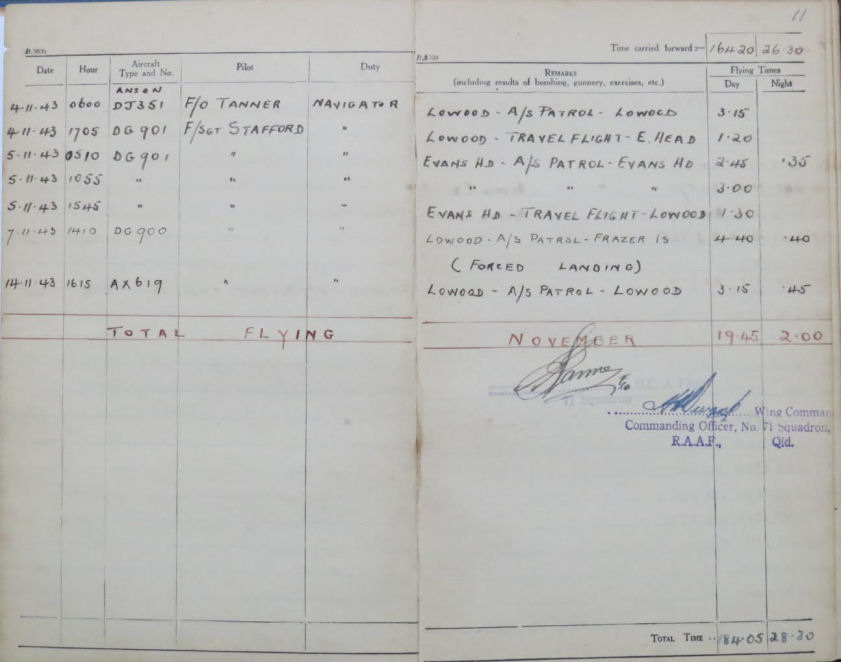 11
D.383s
Time carried forward :— 164·20 26·30
Date Hour Aircraft Type and No. Pilot Duty REMARKS (including results of bombing, gunnery, exercises, etc.) Flying Times Day Night
ANSON
4-11-43 0600 DJ351 F/O TANNER NAVIGATOR LOWOOD - A/S PATROL - LOWOOD 3·15
4-11-43 1705 DG901 F/SGT STAFFORD " LOWOOD - TRAVEL FLIGHT - E. HEAD 1·20
5-11-43 0510 DG901 " " EVANS HD - A/S PATROL - EVANS HD 2·45 ·35
5-11-43 1055 " " " " " " 3·00
5-11-43 1545 " " " EVANS HD - TRAVEL FLIGHT - LOWOOD 1·30
7-11-43 1410 DG900 " " LOWOOD - A/S PATROL - FRAZER IS 4·40 ·40
(FORCED LANDING)
14-11-43 1615 AX619 " " LOWOOD - A/S PATROL - LOWOOD 3·15 ·45
TOTAL FLYING NOVEMBER 19·45 2·00
F/O
71 Squadron
Wing Comman
Commanding Officer, No. 71 Squadron,
R.A.A.F., Qld.
TOTAL TIME 184·05 28·30